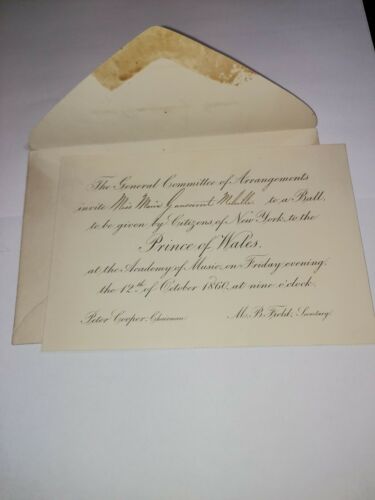 The General Committee of Arrangements
invite Miss Marie to a Ball,
to be given by Citizens of New York, to the
Prince of Wales.
at the Academy of Music, on Friday evening,
the 12th of October 1860, at nine o'clock.
Peter Cooper, Chairman. M. B. Field, Secretary.